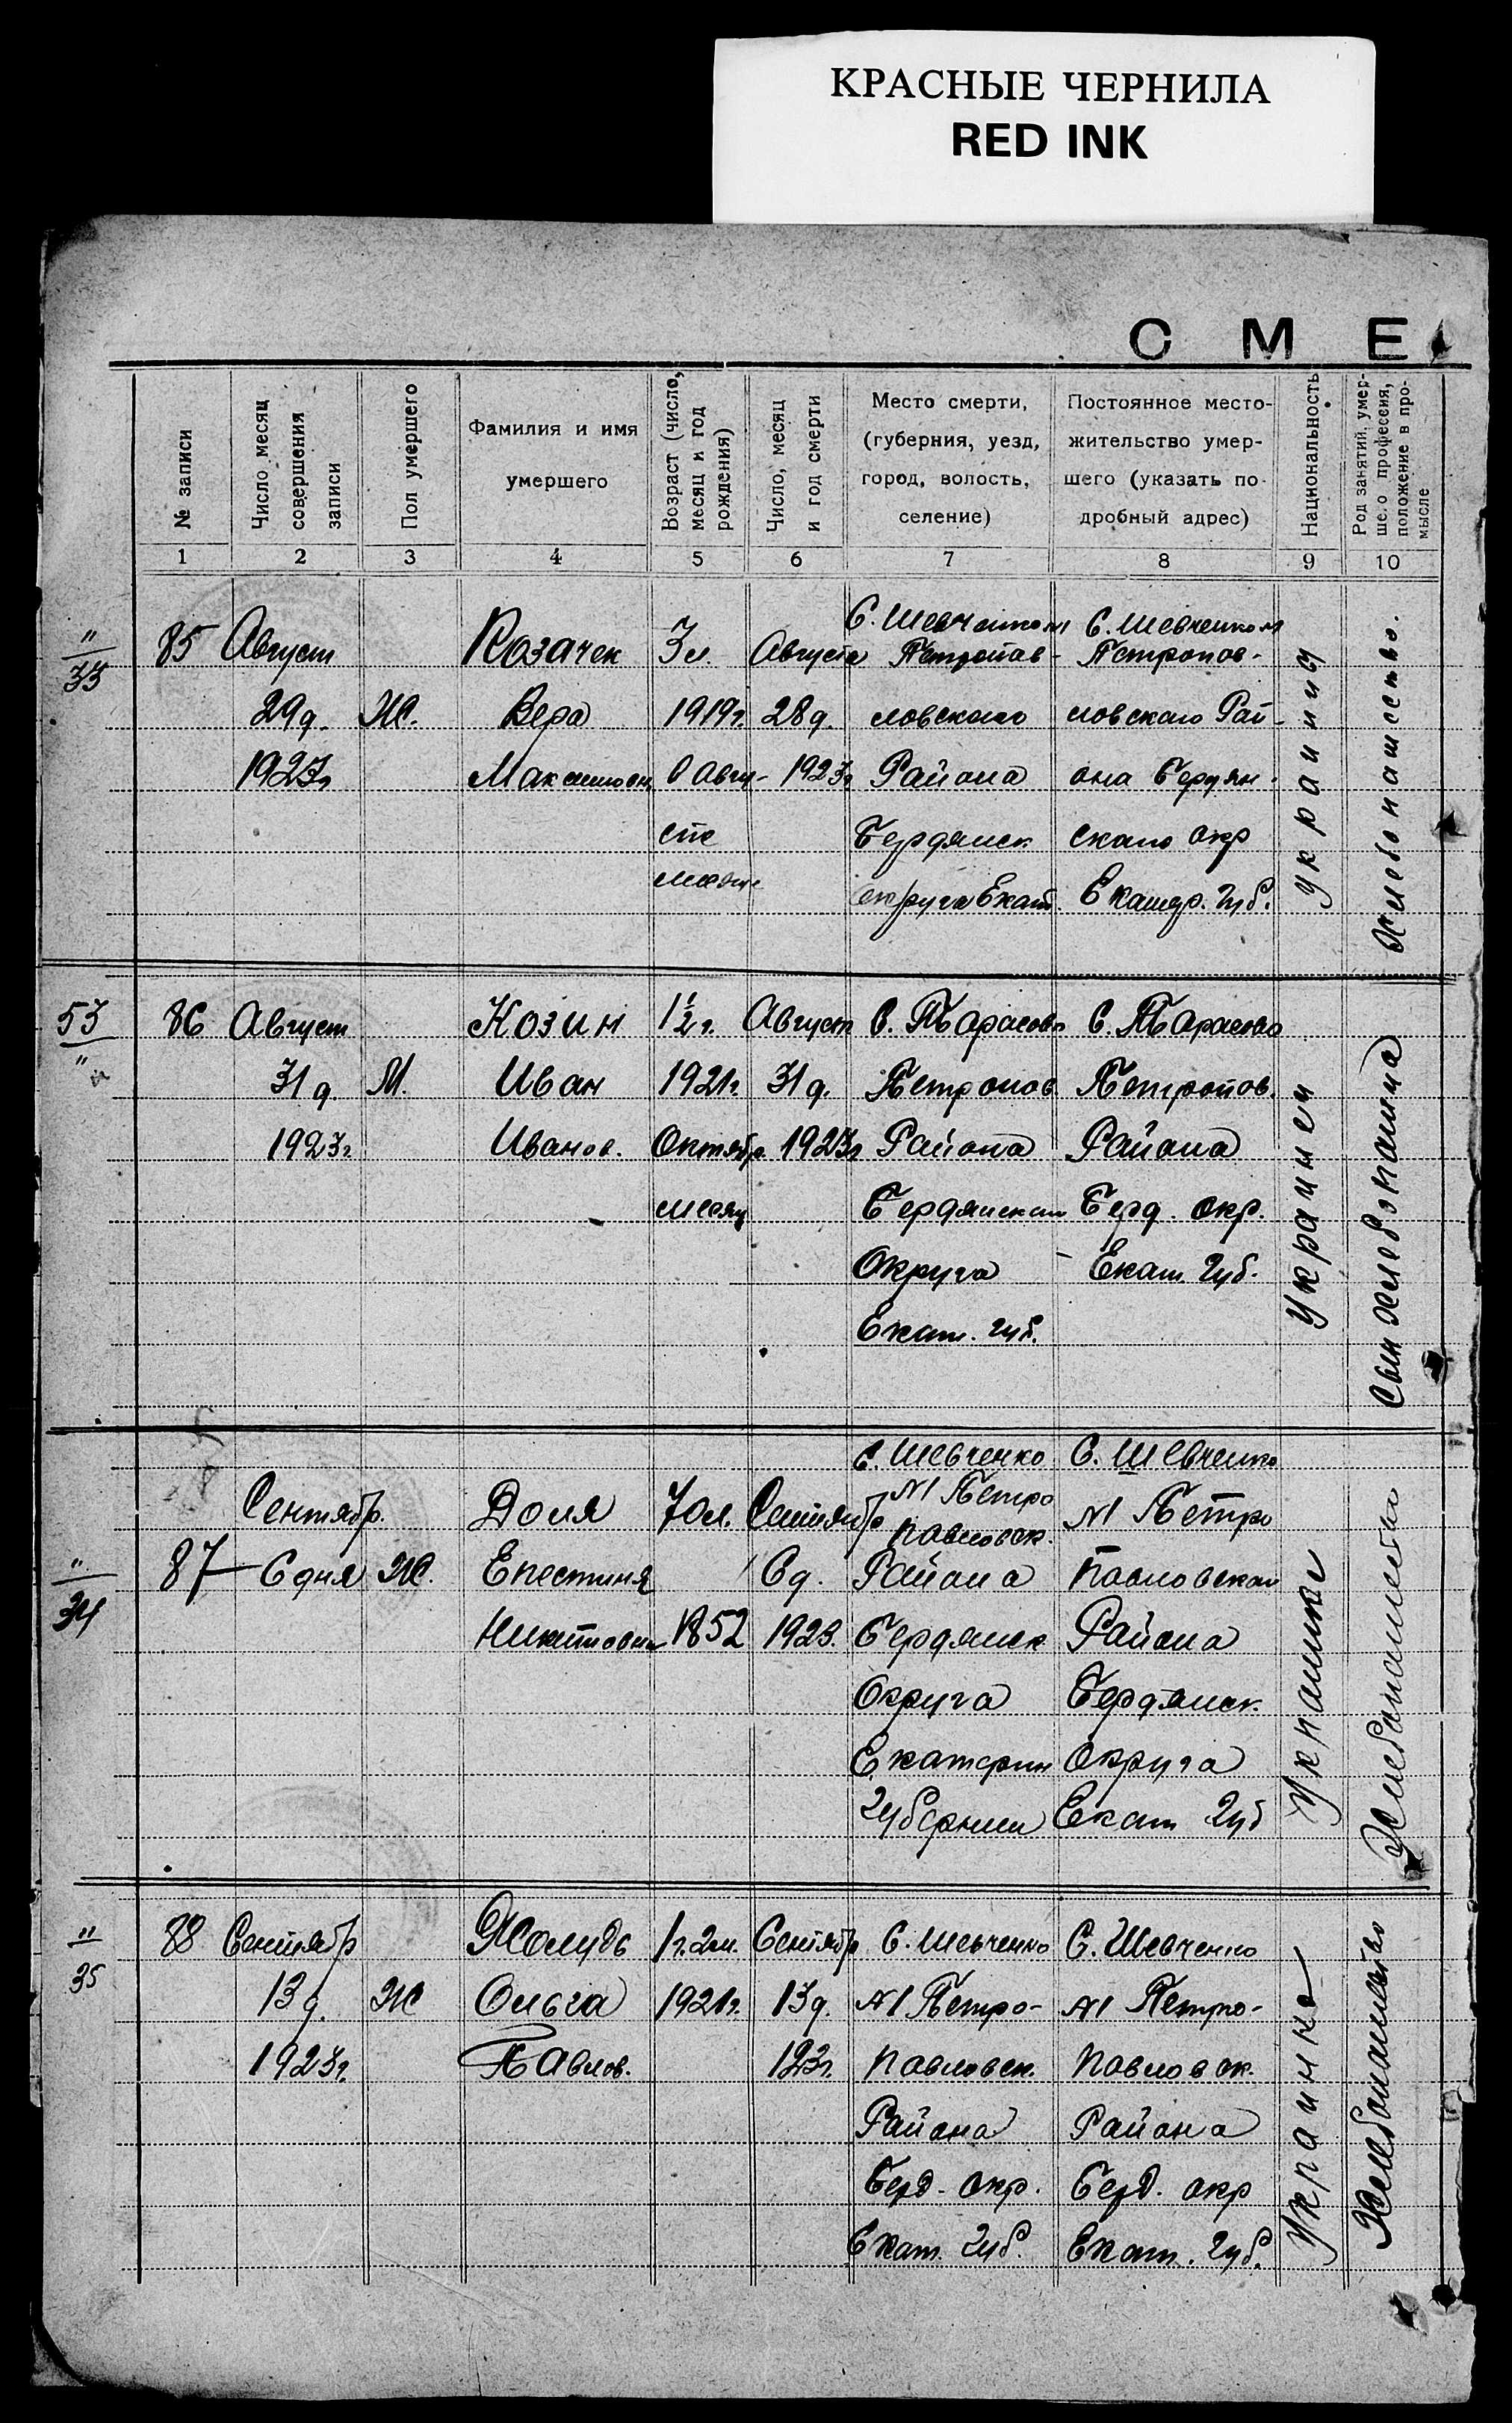 КРАСНЫЕ ЧЕРНИЛА
RED INK
С М Е
№ записи
Число месяц совершения записи
Пол умершего
Фамилия и имя умершего
Возраст (число, месяц и год рождения)
Число, месяц и год смерти
Место смерти, (губерния, уезд, город, волость, селение)
Постоянное место-жительство умер-шего (указать по-дробный адрес)
Национальность
Род занятий, умер-ше.о профессия, положение в про-мысле
1 2 3 4 5 6 7 8 9 10
"
33
85 Август
29д.
1923г
Ж.
Козачек
Вера
3 л.
1919г.
в Авгу-
сте
Августа
28д.
1923г
Петропав-
ловскаго
Района
Бердянск
округа Екат.
Петропов-
ловскаго Рай-
она Бердян
скаго окр
Екатер. губ.
Хлебопашество.
53
"
86 Август
31д.
1923г.
М.
Козин
Иван
Иванов.
1½ г.
1921г.
Октябр.
месяц
Август
31д.
1923г
С. Тарасовка
Петропов.
Района
Бердянскаго
Округа
Екат. губ.
С. Тарасовка
Петропов.
Района
Берд. окр.
Екат. губ.
Украинец
Сын хлебопашца
"
34
87
Сентябр.
6 дня
Ж.
Доля
Епестиня
Никитовна
70 л.
1852
Сентябр
6д.
1923.
С. Шевченко
N1 Петро
павловск.
Района
Бердянск
Округа
Екатерин
Губернии
С. Шевченко
N1 Петро
Павловскаго
Района
Бердянск.
Округа
Екат губ
Хлебопашество
"
35
88 Сентябр
13д.
1923г.
Ж
Жолудь
Ольга
Павлов.
1г. 2 м.
1921г.
Сентябр
13д.
123г.
С. Шевченко
N1 Петро-
Павловск.
Района
Берд. окр.
Екат. губ.
С. Шевченко
N1 Петро-
Павловск.
Района
Берд. окр
Екат. губ.
Украинка
Хлебопашество